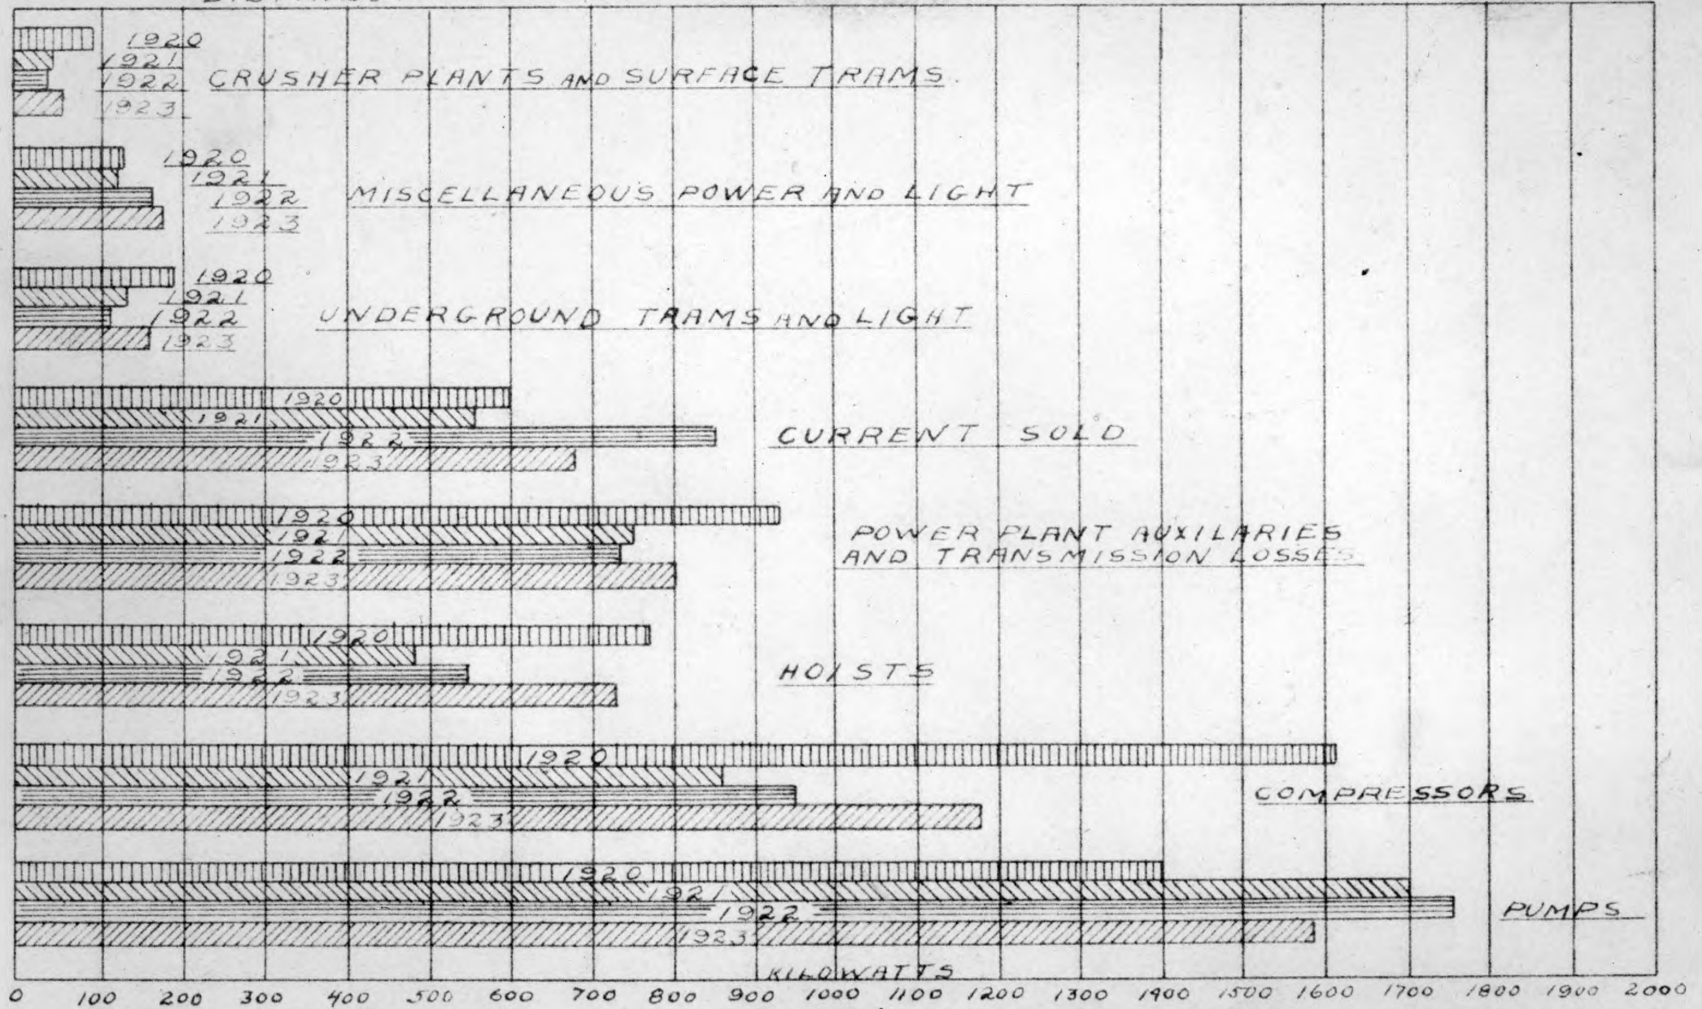 1920
1921
1922 CRUSHER PLANTS AND SURFACE TRAMS
1923
1920
1921
1922 MISCELLANEOUS POWER AND LIGHT
1923
1920
1921
1922 UNDERGROUND TRAMS AND LIGHT
1923
1920
1921
1922 CURRENT SOLD
1923
1920
1921 POWER PLANT AUXILARIES
1922 AND TRANSMISSION LOSSES
1923
1920
1921
1922 HOISTS
1923
1920
1921
1922 COMPRESSORS
1923
1920
1921
1922 PUMPS
1923
KILOWATTS
0 100 200 300 400 500 600 700 800 900 1000 1100 1200 1300 1400 1500 1600 1700 1800 1900 2000